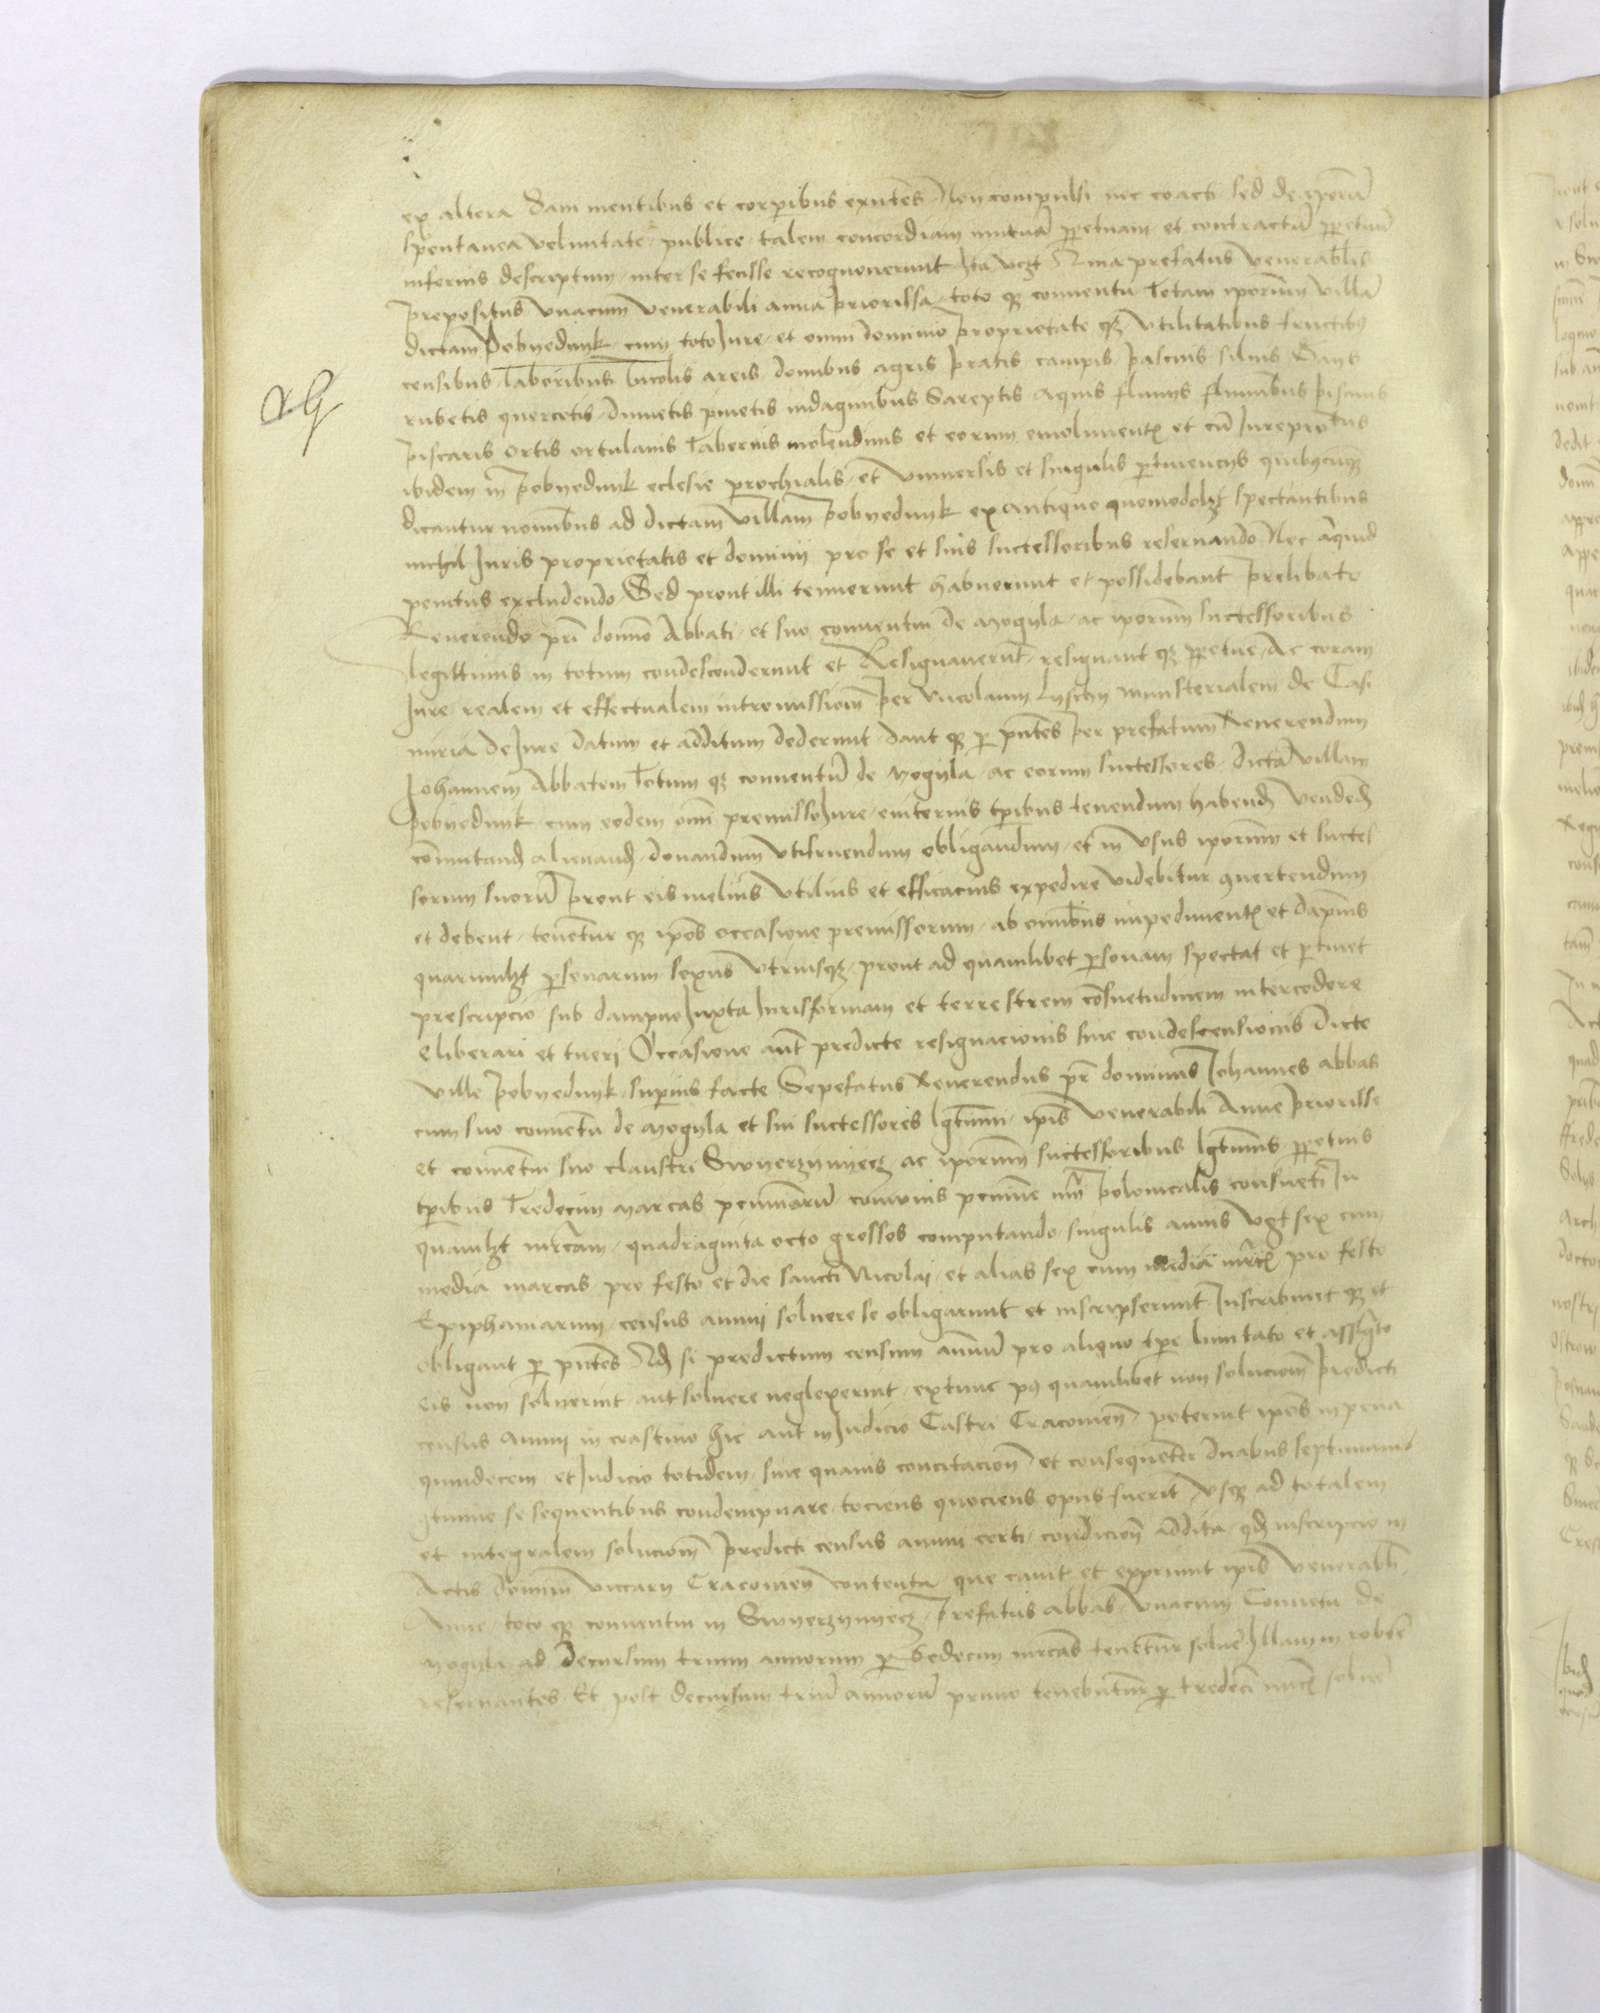 ex altera Sam mentibus et corporibus existentes Non compulsi nec coacti sed de ipsorum
spontanea voluntate publice talem concordiam mutuam perpetuam et contractum perpetuum
inferius descriptum inter se fecisse recognoverunt Ita videlicet Quia prefatus venerabilis
prepositus unacum venerabili anna priorissa totoque conventu Totam ipsorum villam
dictam pobyednyk cum toto Jure et omni dominio proprietate que utilitatibus fructibus
censibus laboribus Incolis areis domibus agris pratis campis pascuis silvis
rubetis quercetis dumetis pinetis indaginibus Sareptis aquis fluviis fluminibus piscinis
piscariis ortis ortulanis Tabernis molendinis et eorum emolumentis et cum Jurepatronatus
ibidem in pobyednyk eclesie parochialis et universis et singulis pertinenciis quibuscumque
dicantur nominibus ad dictam villam pobyednyk ex antiquo quomodolibet spectantibus
nichil Juris proprietatis et dominii pro se et suis successoribus reservando Nec aliquid
penitus excludendo Sed prout illi tenuerunt habuerunt et possidebant prelibato
Reverendo patri domino Abbati et suo conventui de Mogyla ac ipsorum successoribus
legittimis in totum condescenderunt et Resignaverunt resignant que perpetue Ac coram
Jure realem et effectualem intromissionem per Nicolaum ministerialem de Casi
miria de Jure datum et additum dederunt dant que per presentes per prefatum Reverendum
Johannem Abbatem Totum que conventum de Mogyla ac eorum successores dictam villam
pobyednyk cum eodem omni premisso Jure eviternis temporibus tenendum habendum vendendum
commutandum alienandum donandum utifruendum obligandum et in usus ipsorum et succes
sorum suorum prout eis melius utilius et efficacius expedire videbitur convertendum
et debent tenentur que ipsos occasione premissorum ab omnibus impedimentis et dampnis
quarumlibet personarum sexus utriusque prout ad quamlibet personam spectat et pertinet
prescripcio sub dampno Juxta Jurisformam et terrestrem consuetudinem intercedere
eliberari et tueri Occasione autem predicte resignacionis sive condescensionis dicte
ville pobyednyk superius facte Sepefatus Reverendus pater dominus Johannes abbas
cum suo conventu de Mogyla et sui successores legittimi ipsis venerabili Anne priorisse
et conventui suo claustri Swyerzynyecz ac ipsorum successoribus legittimis perpetuis
temporibus Tredecim marcas pecuniarum communis pecunie numeri polonicalis consueti In
quamlibet marcam quadraginta octo grossos computando singulis annis videlicet sex cum
media marcas pro festo et die sancti Nicolai et alias sex cum media marcas pro festo
Epiphaniarum census annui solvere se obligarunt et inscripserunt Inscribunt que et
obligant per presentes Quod si predictum censum annuum pro aliquo tempore limitato et assignato
eis non solverint aut solvere neglexerint extunc post quamlibet non solucionem predicti
census annui in crastino hic aut in Judicio Castri Cracoviensis poterint ipsos in pena
quindecim et Judicio totidem sine quavis concitacione et consequenter duabus septimanis
continue se sequentibus condempnare tociens quociens opus fuerit usque ad totalem
et integralem solucionem predicti census annui certi condicione addita quod inscripcio in
Actis domini vicarii Cracoviensis contenta que cavit et exprimit ipsis venerabili
Anne toto que conventui in Swyerzynyecz prefatus abbas unacum Conventu de
Mogyla ad decursum trium annorum per Sedecim marcas tenetur solvere Illam in robore
reservantes Et post decursum trium annorum primo tenebuntur per tredecim marcas solvere